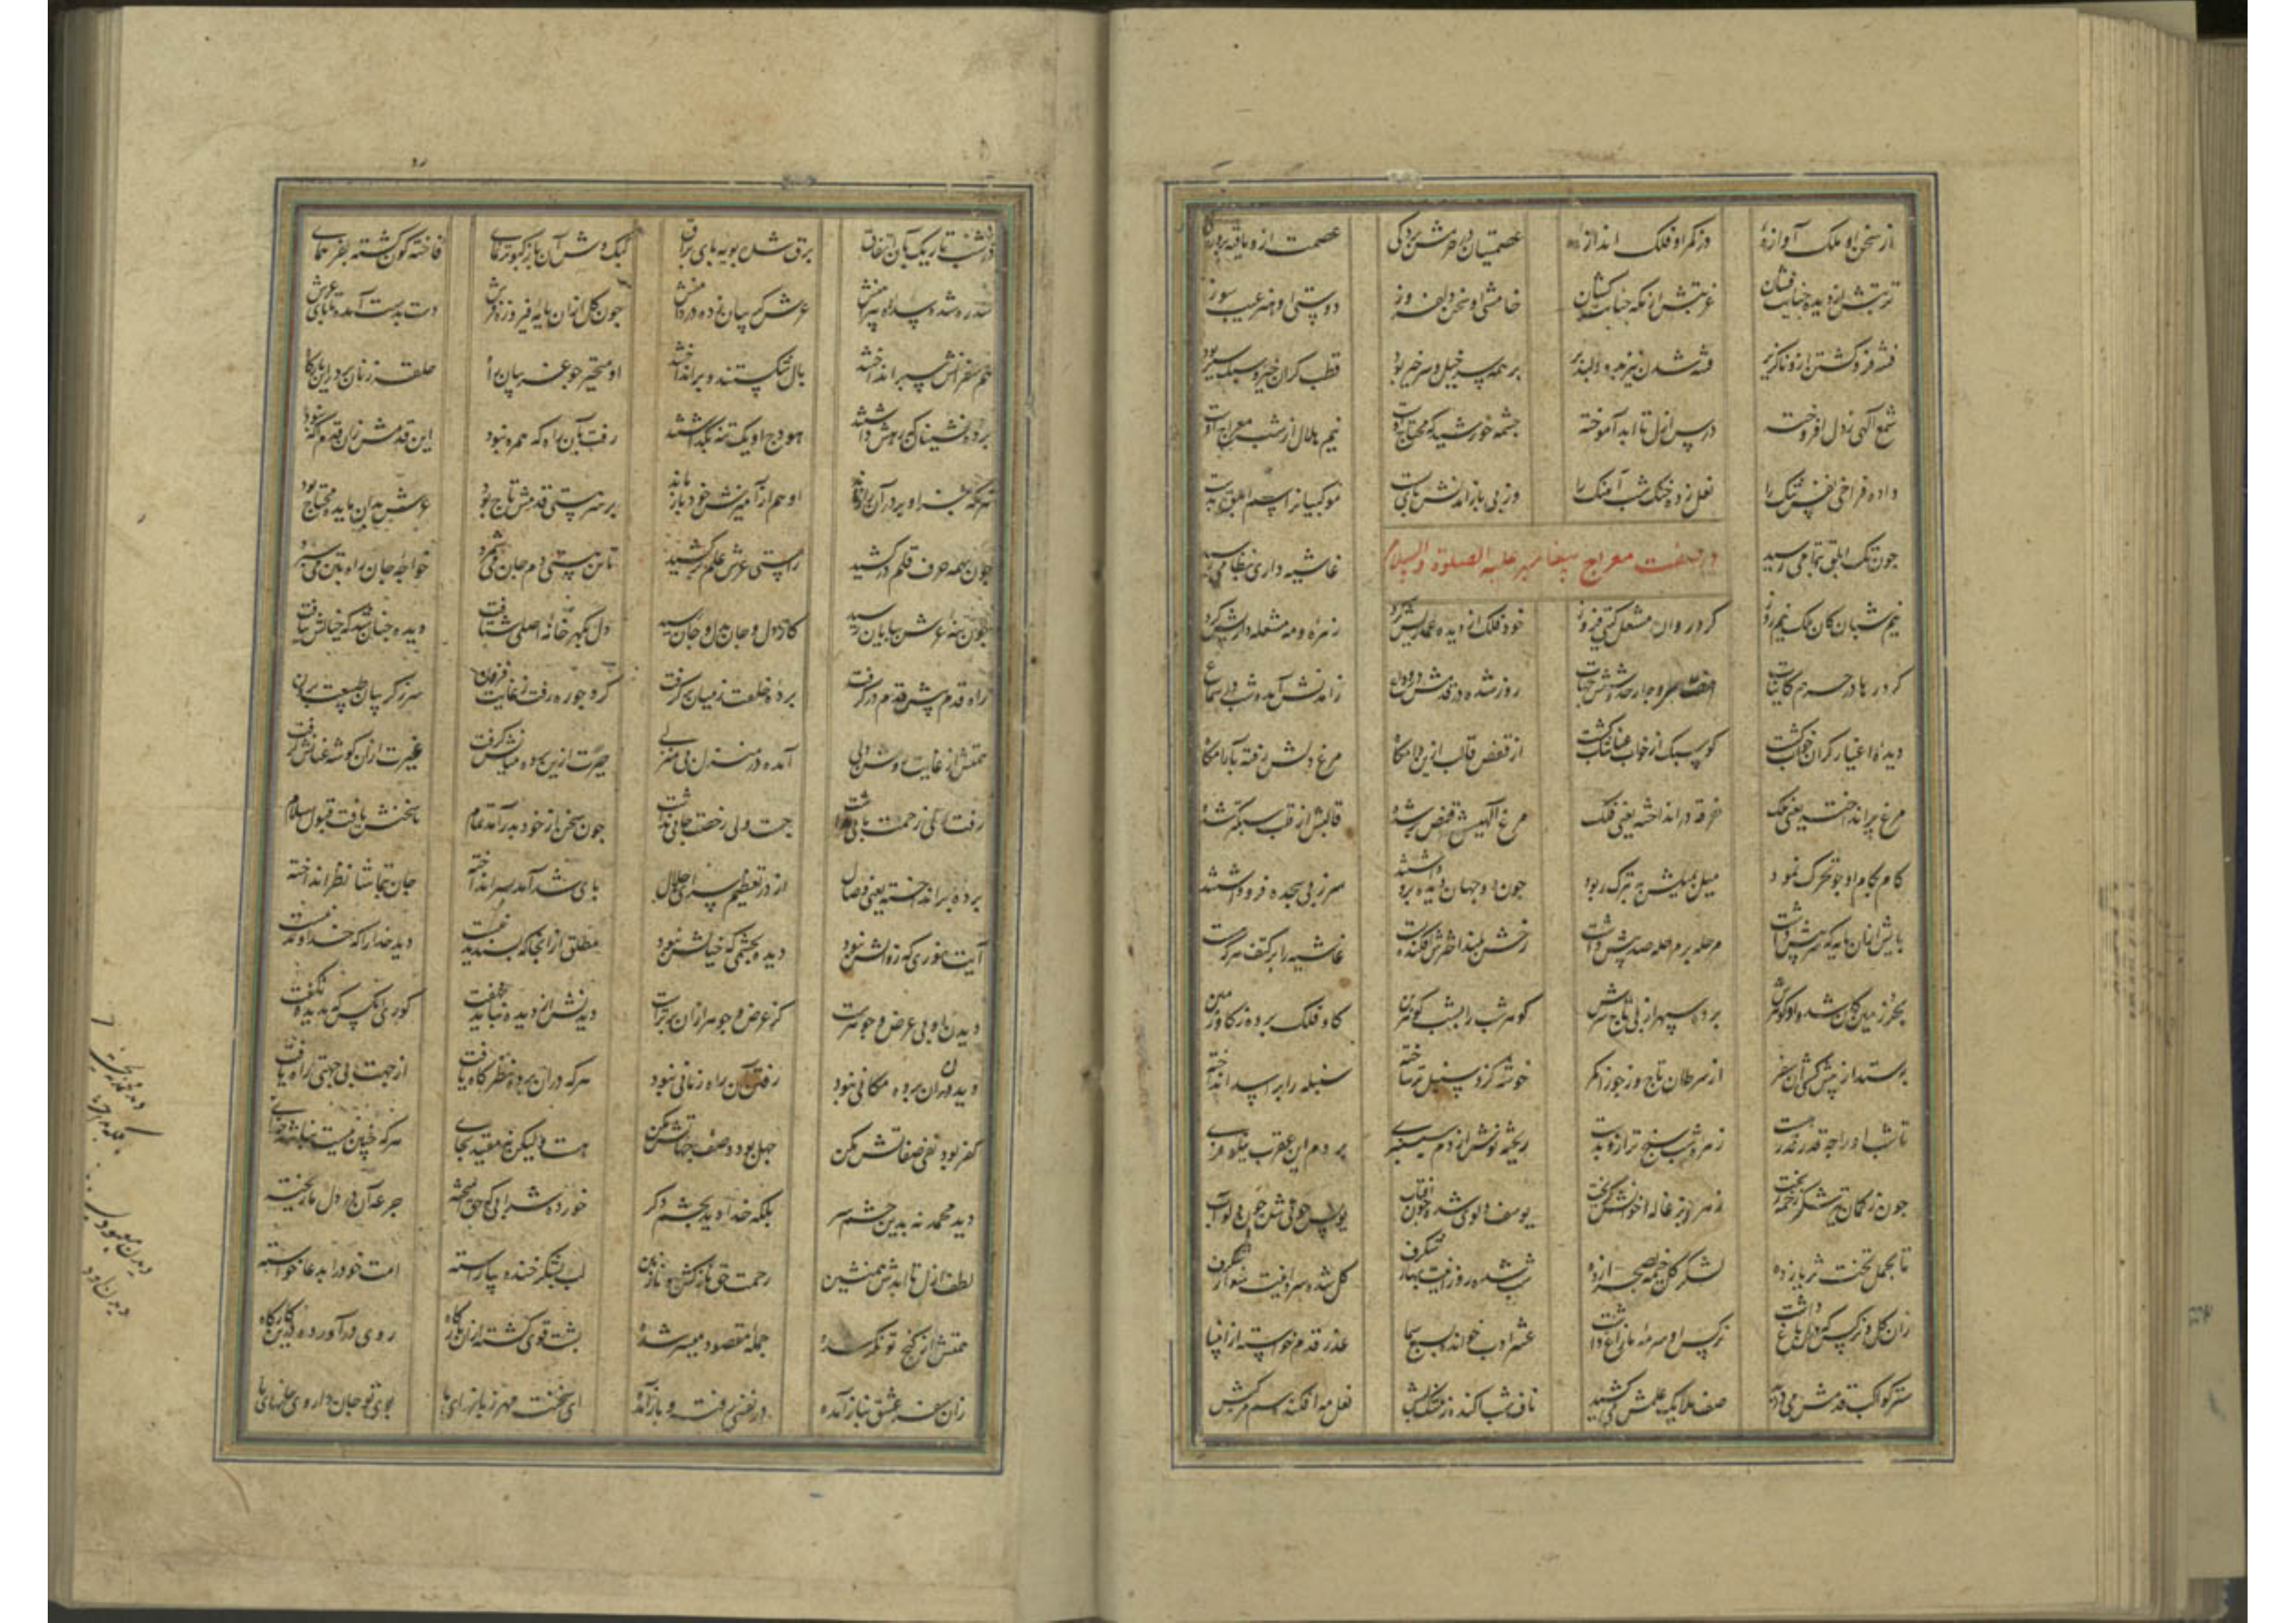 از سخن او ملک آوازهٔ وز کمر او فلک اندازهٔ عصمتیان در حرمش پردکی عصمت ازو یافته پروردکی
تربتش از دیده جنایت ستان غربتش از مکه جبایت ستان خامشی او سخن دلفروز دوستی او هنر عیب سوز
فتنه فرو کشتن ازو ناکزیر فتنه شدن نیز برو دلپذیر بر همه سر خیل و سر خیر بود قطب کران خیز و سبک سیر بود
شمع الهی ز دل افروخته درس ازل تا ابد آموخته چشمه خورشید که محتاج اوست نیم هلال از شب معراج اوست
داده فراخی نفس تنک را نعل زده خنک شب آهنک را وز پی باز آمدنش پای بست موکبیان ابلق بدست
چون تک ابلق بتمامی رسید غاشیه داری بنظامی رسید
در صفت معراج پیغامبر علیه الصلوة والسلام
نیم شبان کان ملک نیم روز کرد روان مشعل کیتی فروز خود فلک از دیده عماریش کرد زهره و مه مشعله داریش کرد
کرد رها در حرم کاینات هفت خط و چار حد و شش جهات روز شده با قدمش در وداع زامدنش آمده شب در سماع
دیده اغیار کران خواب کشت کو سبک از خواب عنان تاب کشت از قفص قالب ازین دامکاه مرغ دلش رفته بآرامکاه
مرغ پر انداخته یعنی ملک خرقه در انداخته یعنی فلک مرغ الهیش قفص پر شده قالبش از قلب سبکتر شده
کام بکام او چو تحرک نمود میل بمیلش بتبرک ربود چون دو جهان دیده برو داشتند سر ز پی سجده فرو داشتند
پایش ازان پایه که سر پیش داشت مرحله بر مرحله صد پیش داشت رخش بلند آخورش افکند پست غاشیه را بر کتف هر که هست
بحر زمین کان شد و او کوهرش برد سپهر از پی تاج سرش کوهر شب را بشب عنبرین کاو فلک برده ز کاو زمین
بستد از پیش کش آن سفر از سرطان تاج و ز جوزا کمر خوشه کزو سنبل تر ساخته سنبله را بر اسد انداخته
تا شب او را چه قدر قدر هست زهره شب سنج ترازو بدست ریخته نوش از دم سیسنبری بر دم این عقرب نیلوفری
چون ز کمان تیر شکر زخمه ریخت زهر ز بزغاله خوانش کریخت یوسف دلوی شده چون آفتاب یونس حوتی شده چون دلو آب
تا بحمل تخت ثریا زده لشکر کل خیمه بصحرا زده شب شده روز اینت بهاری شکرف کل شده سرو اینت سواری شکرف
زان کل و زان نرکس کان باغ داشت نرکس او سرمه مازاغ داشت عشر ادب خوانده ز سبع سما عذر قدم خواسته از انبیا
ستر کواکب قدمش می درید صف ملایک علمش می کشید ناف شب آکنده ز مشک لبش نعل مه افکنده سم مرکبش
در شب تاریک بآن اتفاق برق شده پویه پای براق کبک وش آن باز کبوتر نمای فاخته کون کشته بفر همای
سدره شده صدره پیراهنش عرش کریبان زده در دامنش چون کل ازان پایه فیروزه فرش دست بدست آمده تا پای عرش
هم سفرانش سپر انداختند بال شکستند و پر انداختند او متحیر چو غریبان راه حلقه زنان بر در این بارکاه
پرده نشینان که رهش داشتند هودج او یک تنه بکذاشتند رفت بآن راه که همره نبود این قدمش زان قدم آکه نبود
هر که جز او بر در آن راز ماند او هم از آمیزش خود باز ماند بر سر هستی قدمش تاج بود عرش بدان مایده محتاج بود
چون همه حرف قلم در کشید راستی عرش علم بر کشید تا تن هستی دم جان می شمرد خواجه جان راه بتن می سپرد
چون بنه عرش بپایان رسید کار دل و جان بدل و جان رسید دل بکهر خانه اصلی شتافت دیده چنان شد که خیالش نیافت
راه قدم پیش قدم در کرفت پرده خلقت ز میان بر کرفت کرد چو ره رفت ز غایت فزون سر ز کریبان طبیعت برون
همتش از غایت روشن دلی آمده در منزل بی منزلی حیرت ازین پرده میانش کرفت غیرت ازان کوشه عنانش کرفت
رفت ولی زحمت پایی نداشت جست ولی رخصت جایی نداشت چون سخن از خود بدر آمد تمام تا سخنش یافت قبول سلام
پرده بر انداخته یعنی وصال از در تعظیم سرای جلال پای شد آمد بسر انداخته جان بتماشا نظر انداخته
آیت نوری که زوالش نبود دید بچشمی که خیالش نبود مطلق از آنجا که پسندیدنیست دید خدا را که خدا دیدنیست
دیدن او بی عرض و جوهرست کز عرض و جوهر ازان برترست دیدنش از دیده نباید نهفت کوری آنکس که بدیده نکفت
دیدن آن پرده مکانی نبود رفتن آن راه زمانی نبود هر که در آن پرده نظر کاه یافت از جهت بی جهتی راه یافت
کفر بود نفی صفاتش مکن جهل بود وصف جهاتش مکن هست ولیکن نه مقید بجای هر که چنین نیست نباشد خدای
دید محمد نه بدین چشم سر بلکه خدا دید بچشم دکر خورده شرابی که حق آمیخته جرعه آن در دل ما ریخته
لطف ازل تا ابدش همنشین رحمت حق نازکش و نازنین لب بشکر خنده بیاراسته امت خود را بدعا خواسته
همتش از کنج توانکر شده جمله مقصود میسر شده پشت قوی کشته ازان بارکاه روی در آورده بدین کارکاه
زان سفر عشق نیاز آمده در نفسی رفت و باز آمده ای سخنت مهر زبانهای ما بوی تو جان داروی جانهای ما